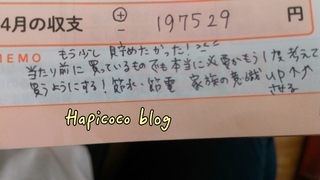 4月の収支 ⊕ - 197529 円
MEMO もう少し貯めたかった!
当たり前に買っているものでも本当に必要かもう1度考えて
買うようにする! 節水・節電 家族の意識UP↑↑
させる
Hapicoco blog